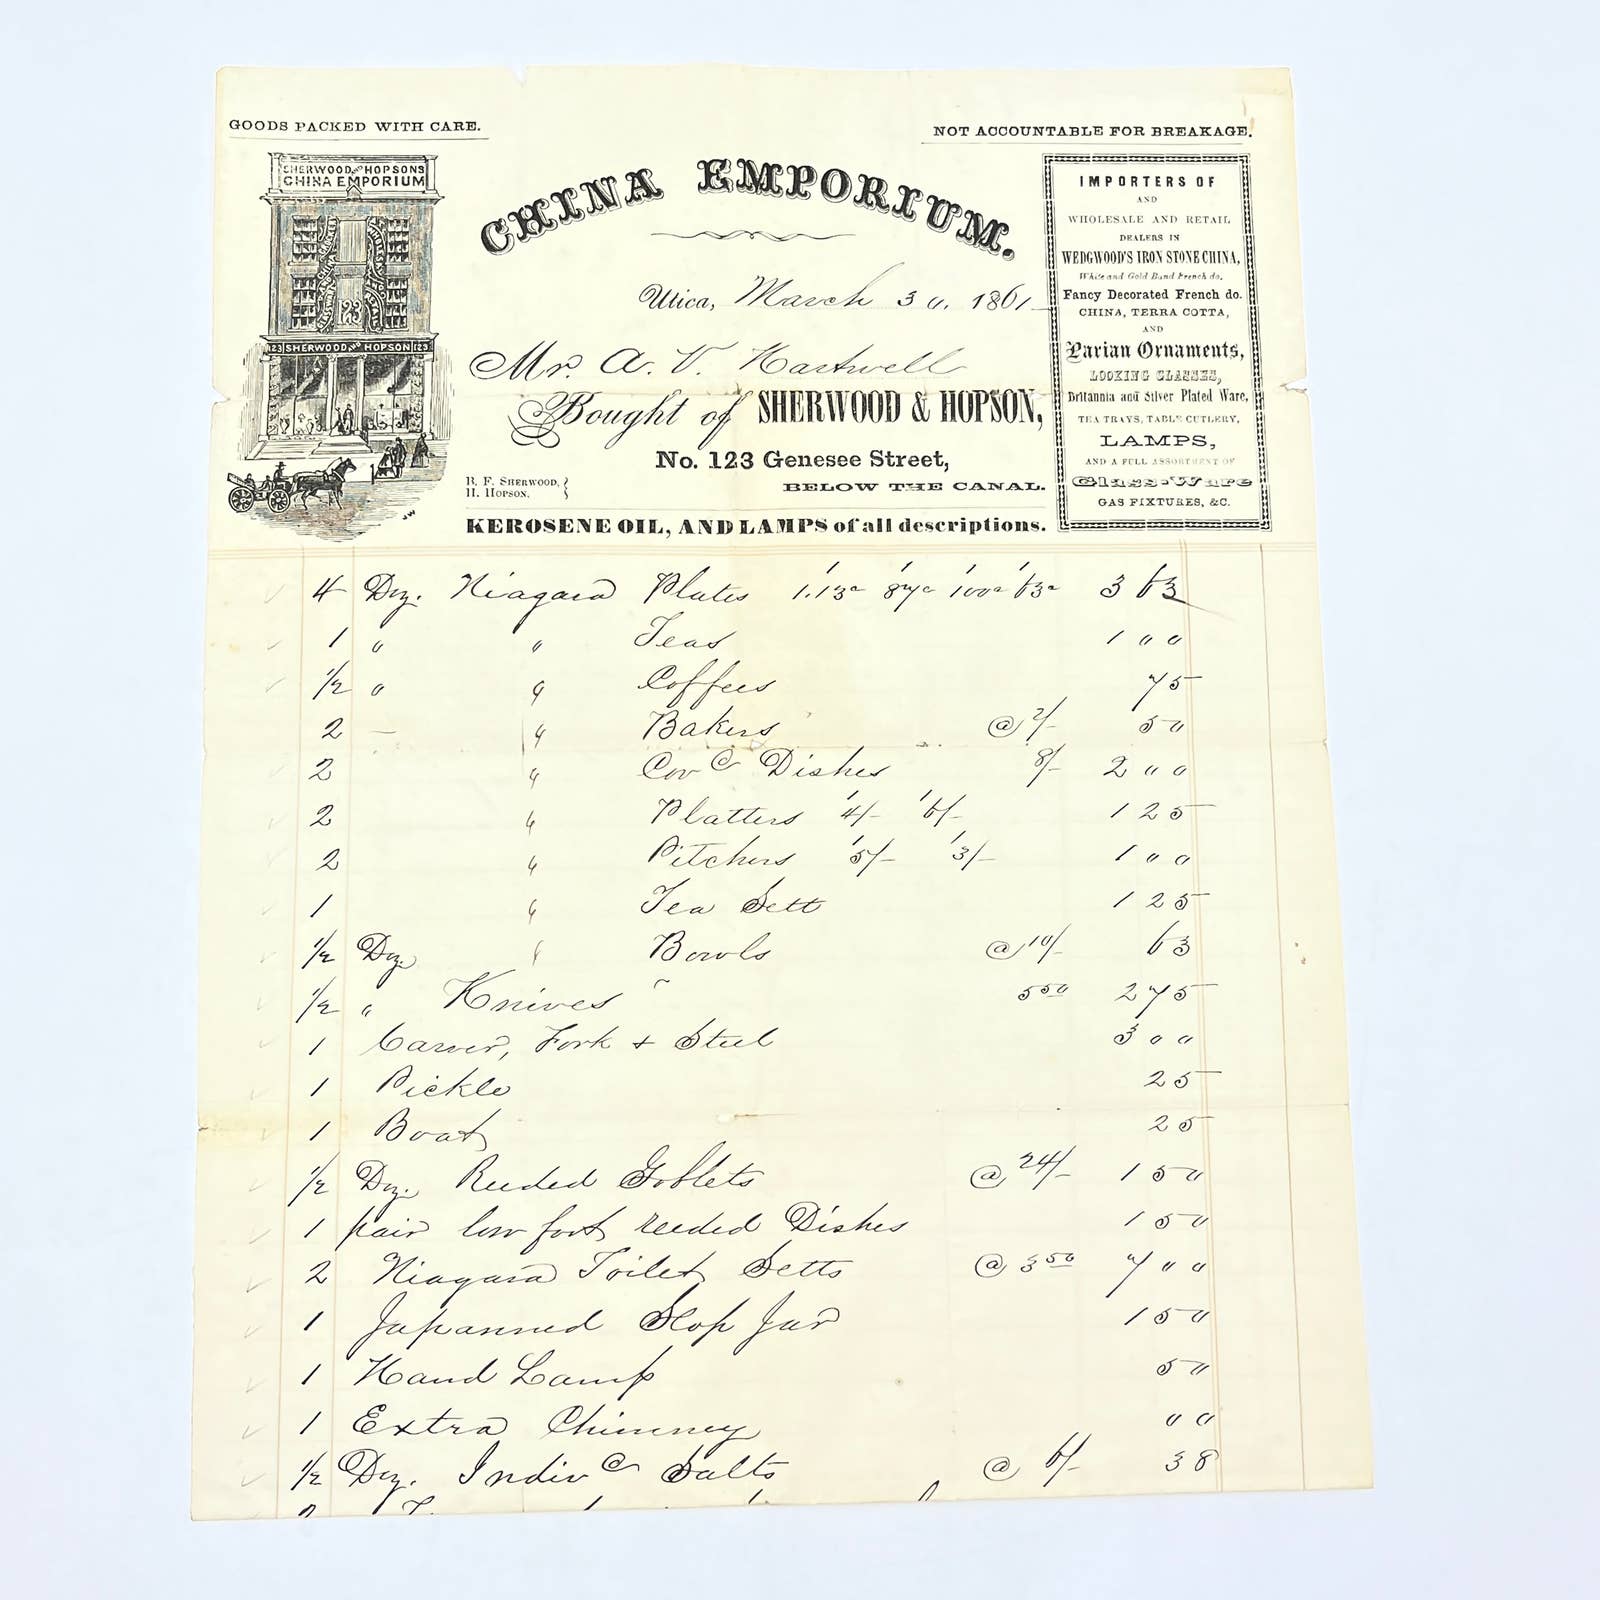 GOODS PACKED WITH CARE.
NOT ACCOUNTABLE FOR BREAKAGE.
SHERWOOD AND HOPSONS
CHINA EMPORIUM
123
123 SHERWOOD AND HOPSON 123
JW
CHINA EMPORIUM.
Utica, March 30. 1861
Mr. A. V. Hartwell
Bought of SHERWOOD & HOPSON,
No. 123 Genesee Street,
BELOW THE CANAL.
B. F. SHERWOOD,
H. HOPSON.
KEROSENE OIL, AND LAMPS of all descriptions.
IMPORTERS OF
AND
WHOLESALE AND RETAIL
DEALERS IN
WEDGWOOD'S IRON STONE CHINA,
White and Gold Band French do.
Fancy Decorated French do.
CHINA, TERRA COTTA,
AND
Parian Ornaments,
LOOKING GLASSES,
Britannia and Silver Plated Ware,
TEA TRAYS, TABLE CUTLERY,
LAMPS,
AND A FULL ASSORTMENT OF
Glass-Ware
GAS FIXTURES, &C.
4 Doz. Niagara Plates 1/1.13c 1/87c 1/100c 1/63c 3 63
1 " " Teas 1 00
1/2 " " Coffees 75
2 " Bakers @ 2/- 50
2 " Covd Dishes 8/- 2 00
2 " Platters 1/4/- 1/6/- 1 25
2 " Pitchers 1/5/- 1/3/- 1 00
1 " Tea Sett 1 25
1/2 Doz. " Bowls @ 10/- 63
1/2 " Knives 5 50 2 75
1 Carver, Fork + Steel 3 00
1 Pickle 25
1 Boat 25
1/2 Doz. Reeded Goblets @ 24/- 1 50
1 pair low foot reeded Dishes 1 50
2 Niagara Toilet Setts @ 3 50 7 00
1 Japanned Slop Jar 1 50
1 Hand Lamp 50
1 Extra Chimney 00
1/2 Doz. Indivd Salts @ 6/- 38